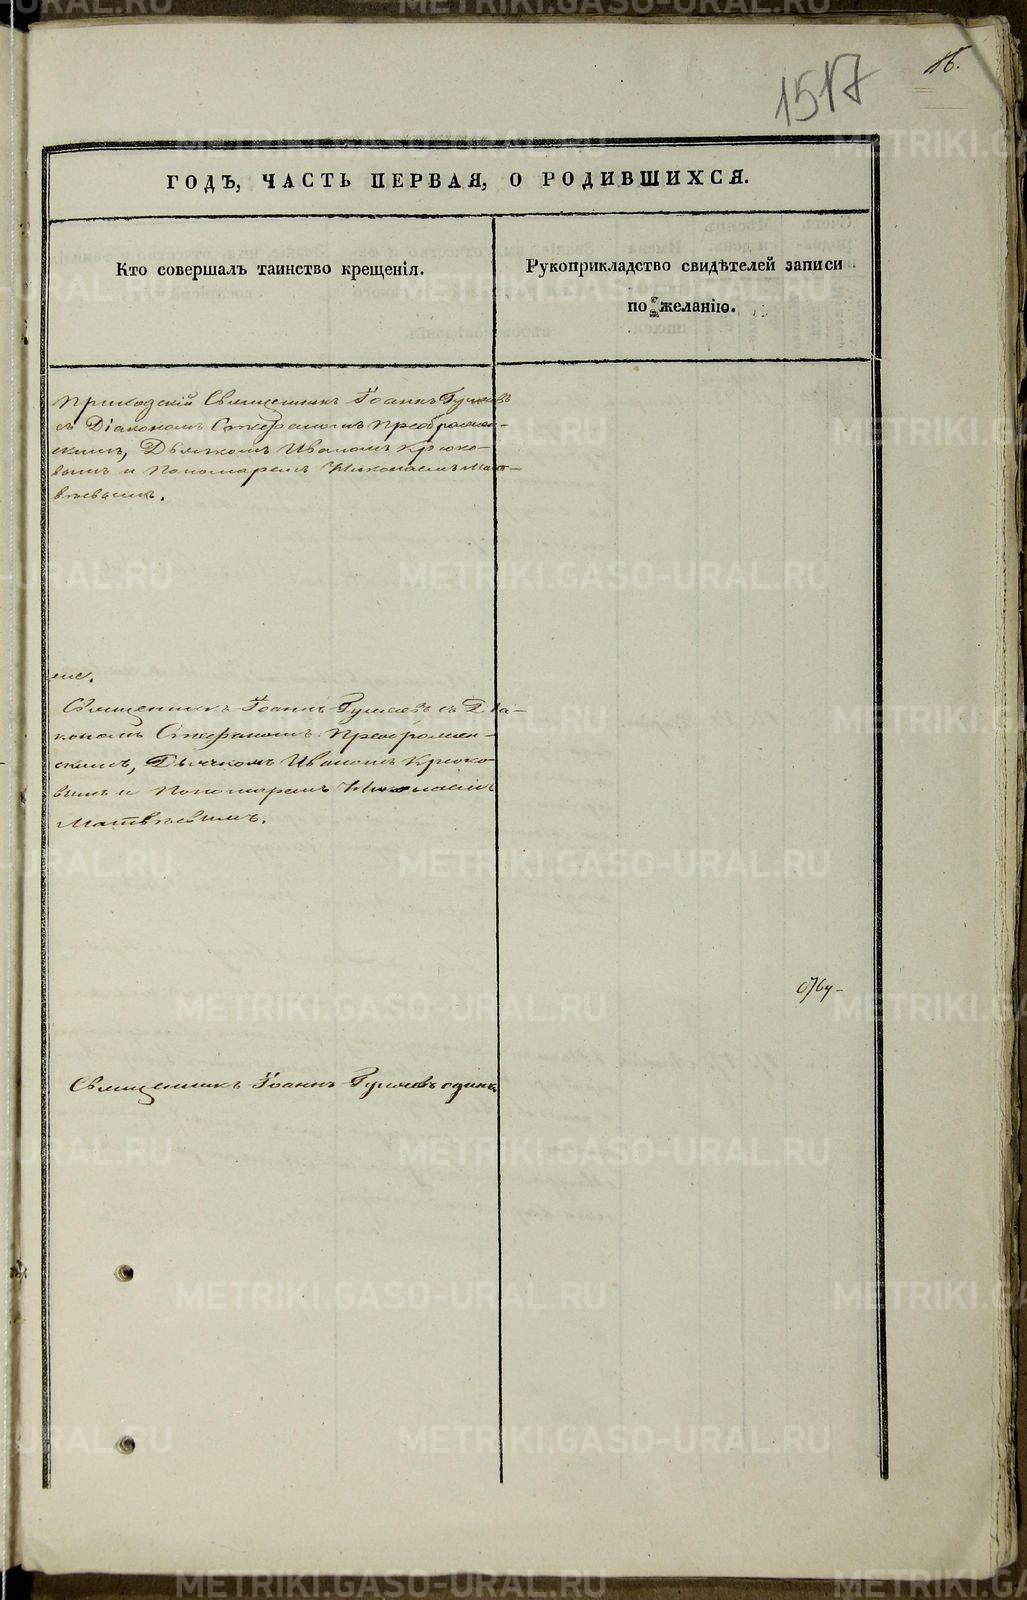 16.
1517
ГОДЪ, ЧАСТЬ ПЕРВАЯ, О РОДИВШИХСЯ.
Кто совершалъ таинство крещенія.
Рукоприкладство свидѣтелей записи
по желанію.
Приходскій Священникъ Іоаннъ
съ Діакономъ Стефаномъ Преображен-
скимъ, Дьячкомъ Иваномъ Крюко-
вымъ и Пономаремъ Николаемъ Мат-
вѣевымъ.
Священникъ Іоаннъ съ Діа-
кономъ Стефаномъ Преображен-
скимъ, Дьячкомъ Иваномъ Крюко-
вымъ и Пономаремъ Николаемъ
Матвѣевымъ.
Священникъ Іоаннъ одинъ.
METRIKI.GASO-URAL.RU